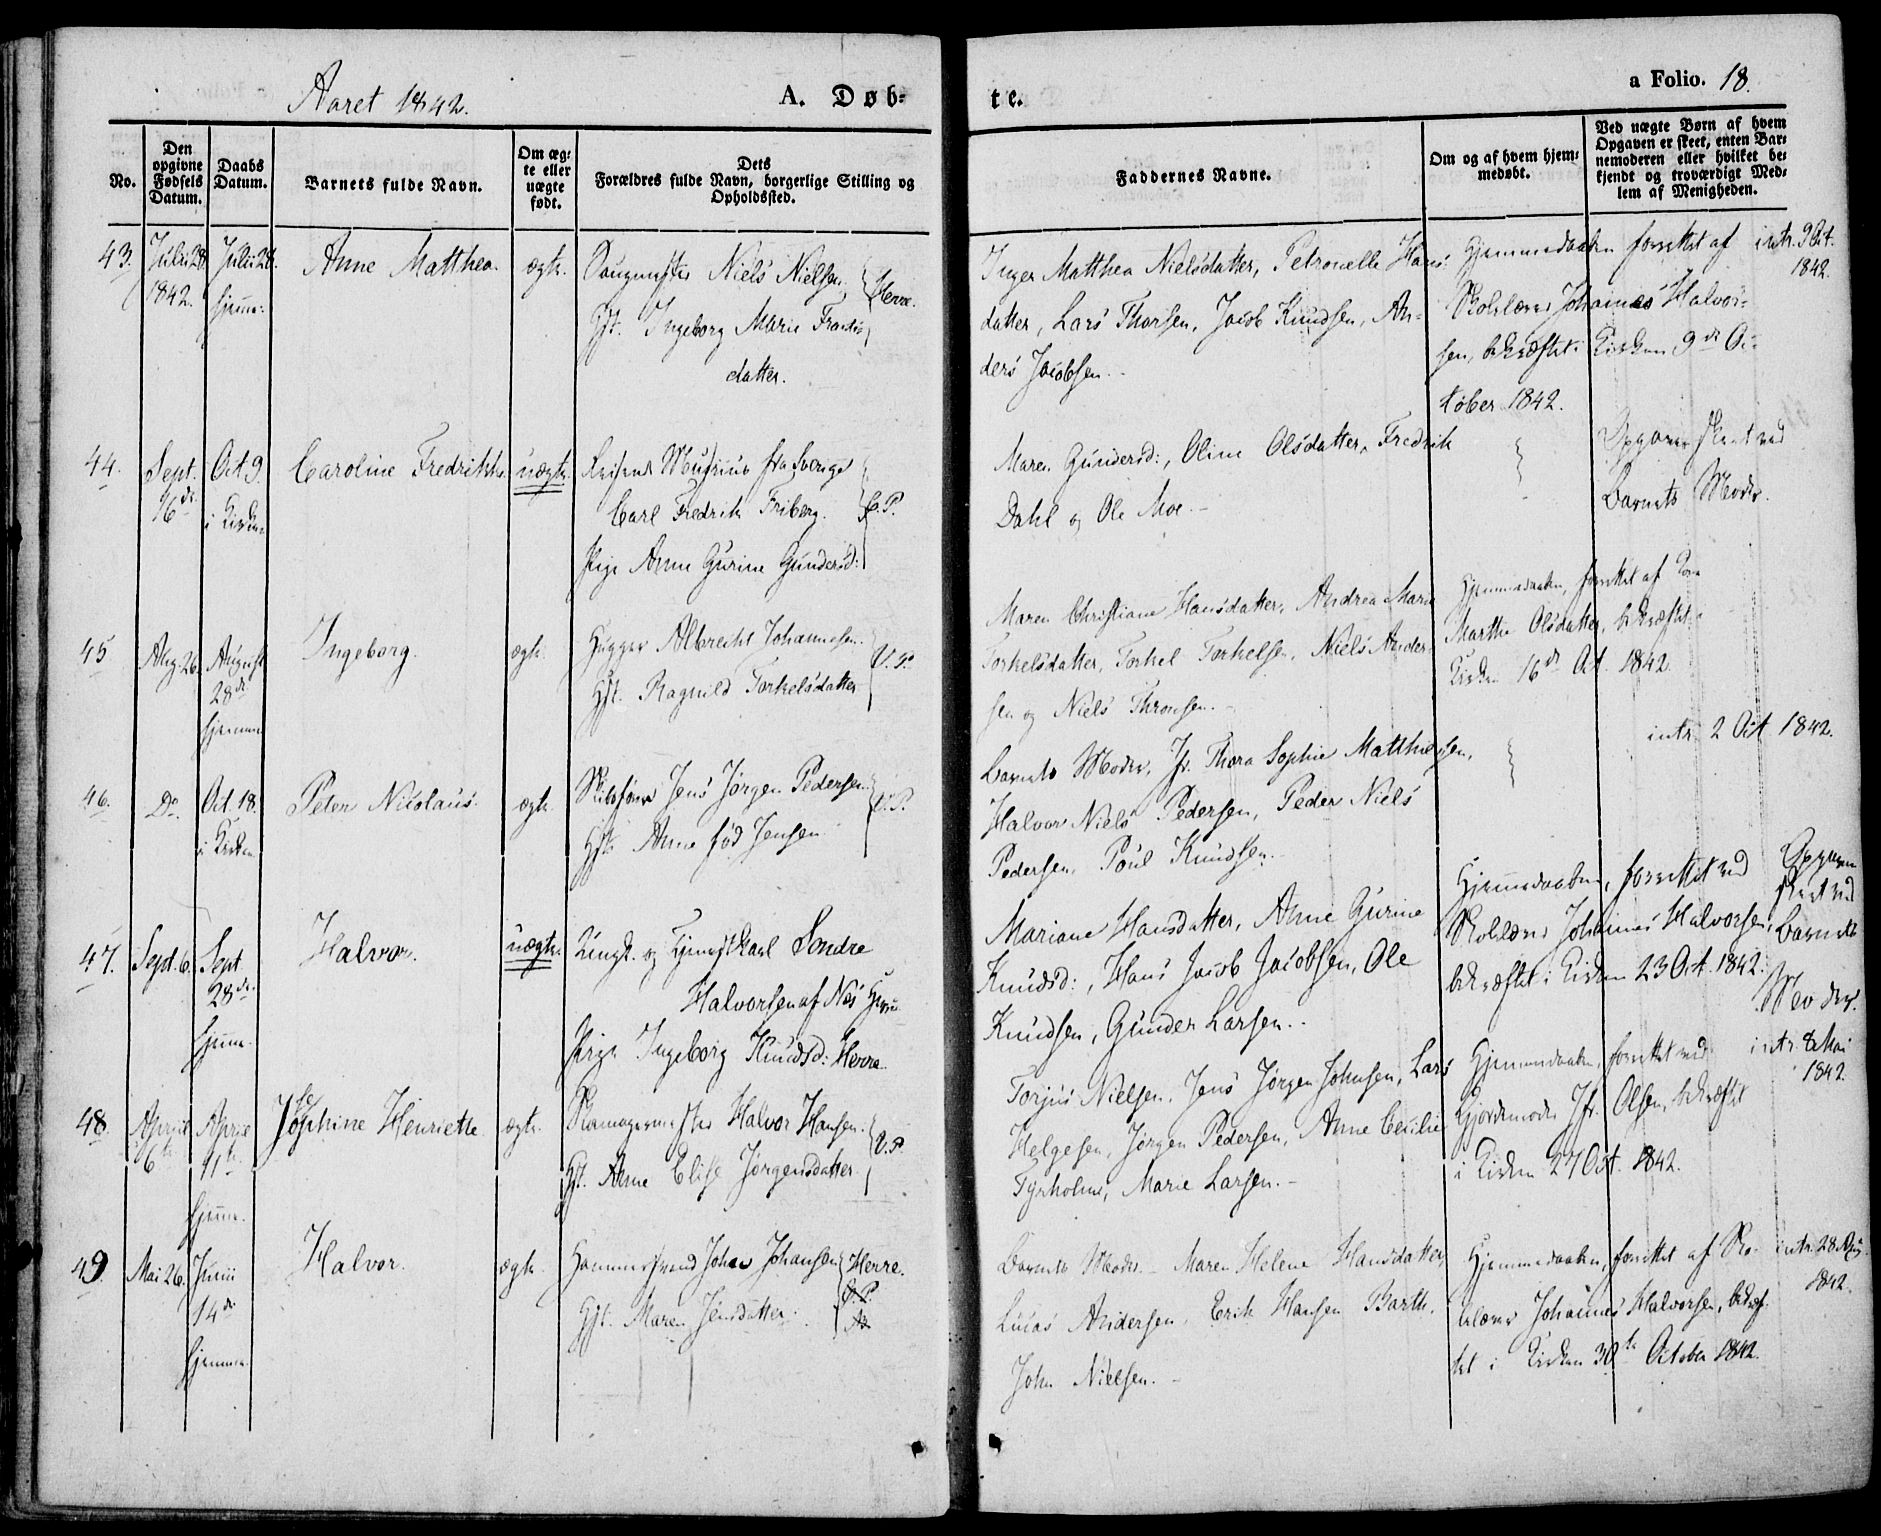 Aaret 1842.
A. Døb-
te.
a Folio. 18.
No.
Den
opgivne
Fødsels
Datum.
Daabs
Datum.
Barnets fulde Navn.
Om æg-
te eller
uægte
født.
Dets
Forældres fulde Navn, borgerlige Stilling og
Opholdssted.
Faddernes Navne.
Om og af hvem hjem-
medøbt.
Ved uægte Børn af hvem
Opgaven er skeet, enten Bar-
nemoderen eller hvilket be-
kjendt og troværdigt Med-
lem af Menigheden.
43.
Julii 28
1842.
Julii 28.
hjemme
Anne Matthea.
ægte.
Niels Nielsen
Gft. Ingeborg Marie Frants
datter.
Herre.
Inger Matthea Nielsdatter, Petronelle Hans
datter, Lars Thorsen, Jacob Knudsen, An-
ders Jacobsen.
Hjemmedaaben forrettet af
Skolelærer Johannes Halvor-
sen, bekræftet i Kirken 9de Oc-
tober 1842.
intr. 9 Oct.
1842.
44.
Sept.
16de
Oct. 9
i Kirken
Caroline Fredrikke
uægte.
fra Sverige
Carl Fredrik Friberg.
Pige Anne Gurine Gundersd:
P.P.
Maren Gundersd:, Oline Olsdatter, Fredrik
Dahl og Ole Moe.
Opgaven skeet ved
Barnets Moder.
45
Aug. 26.
August
28de
hjemme
Ingeborg.
ægte.
Hugger Albrecht Johannesen.
Gft. Ragnild Torkelsdatter
V.P.
Maren Christiane Hansdatter, Andrea Marie
Torkelsdatter, Torkel Torkelsen, Niels Ander-
sen og Niels Thronsen.
Hjemmedaaben, forrettet af Kone
Marthe Olsdatter, bekræftet i
Kirken 16de Oct. 1842.
46.
Do.
Oct. 18.
i Kirken
Peter Nicolaus.
ægte.
Skibsfører Jens Jørgen Pedersen
Gft. Anne fød Jensen
V.P.
Barnets Moder, Jfr. Thora Sophie Matthiesen,
Halvor Niels Pedersen, Peder Niels
Pedersen, Poul Knudsen.
intr. 2 Oct 1842.
47.
Sept. 6.
Sept.
28de
hjemme
Halvor.
uægte.
Ungk. og Tjenestkarl Sondre
Halvorsen af Næs
Pige Ingeborg Knudsd: Herre.
Mariane Hansdatter, Anne Gurine
Knudsd:, Hans Jacob Jacobsen, Ole
Knudsen, Gunder Larsen.
Hjemmedaaben, forrettet ved
Skolelærer Johannes Halvorsen,
bekræftet i Kirken 23 Oct. 1842.
Opgaven
skeet ved
Barnets
Moder.
48.
April
6te
April
11te
hjemme.
Josephine Henriette.
ægte.
Skomagermester Halvor Hansen.
Gft. Anne Elise Jørgensdatter.
V.P.
Torjus Nielsen, Jens Jørgen Johnsen, Lars
Helgesen, Jørgen Pedersen, Anne Cecilie
Tyrholm, Marie Larsen.
Hjemmedaaben, forrettet ved
Gjordemoder Jfr. Olsen, bekræftet
i Kirken 27 Oct. 1842.
intr. 8 Mai
1842.
49
Mai 26.
Junii
14de
hjemme
Halvor.
ægte.
Hammersmed Johan Johansen
Gft. Maren Jensdatter.
Herre.
V.P.
Barnets Moder, Maren Helene Hansdatter,
Lucas Andersen, Erik Hansen Barth,
John Nielsen.
Hjemmedaaben, forrettet af Sko-
lelærer Johannes Halvorsen, bekræf-
tet i Kirken 30te October 1842.
intr. 28 Aug.
1842.